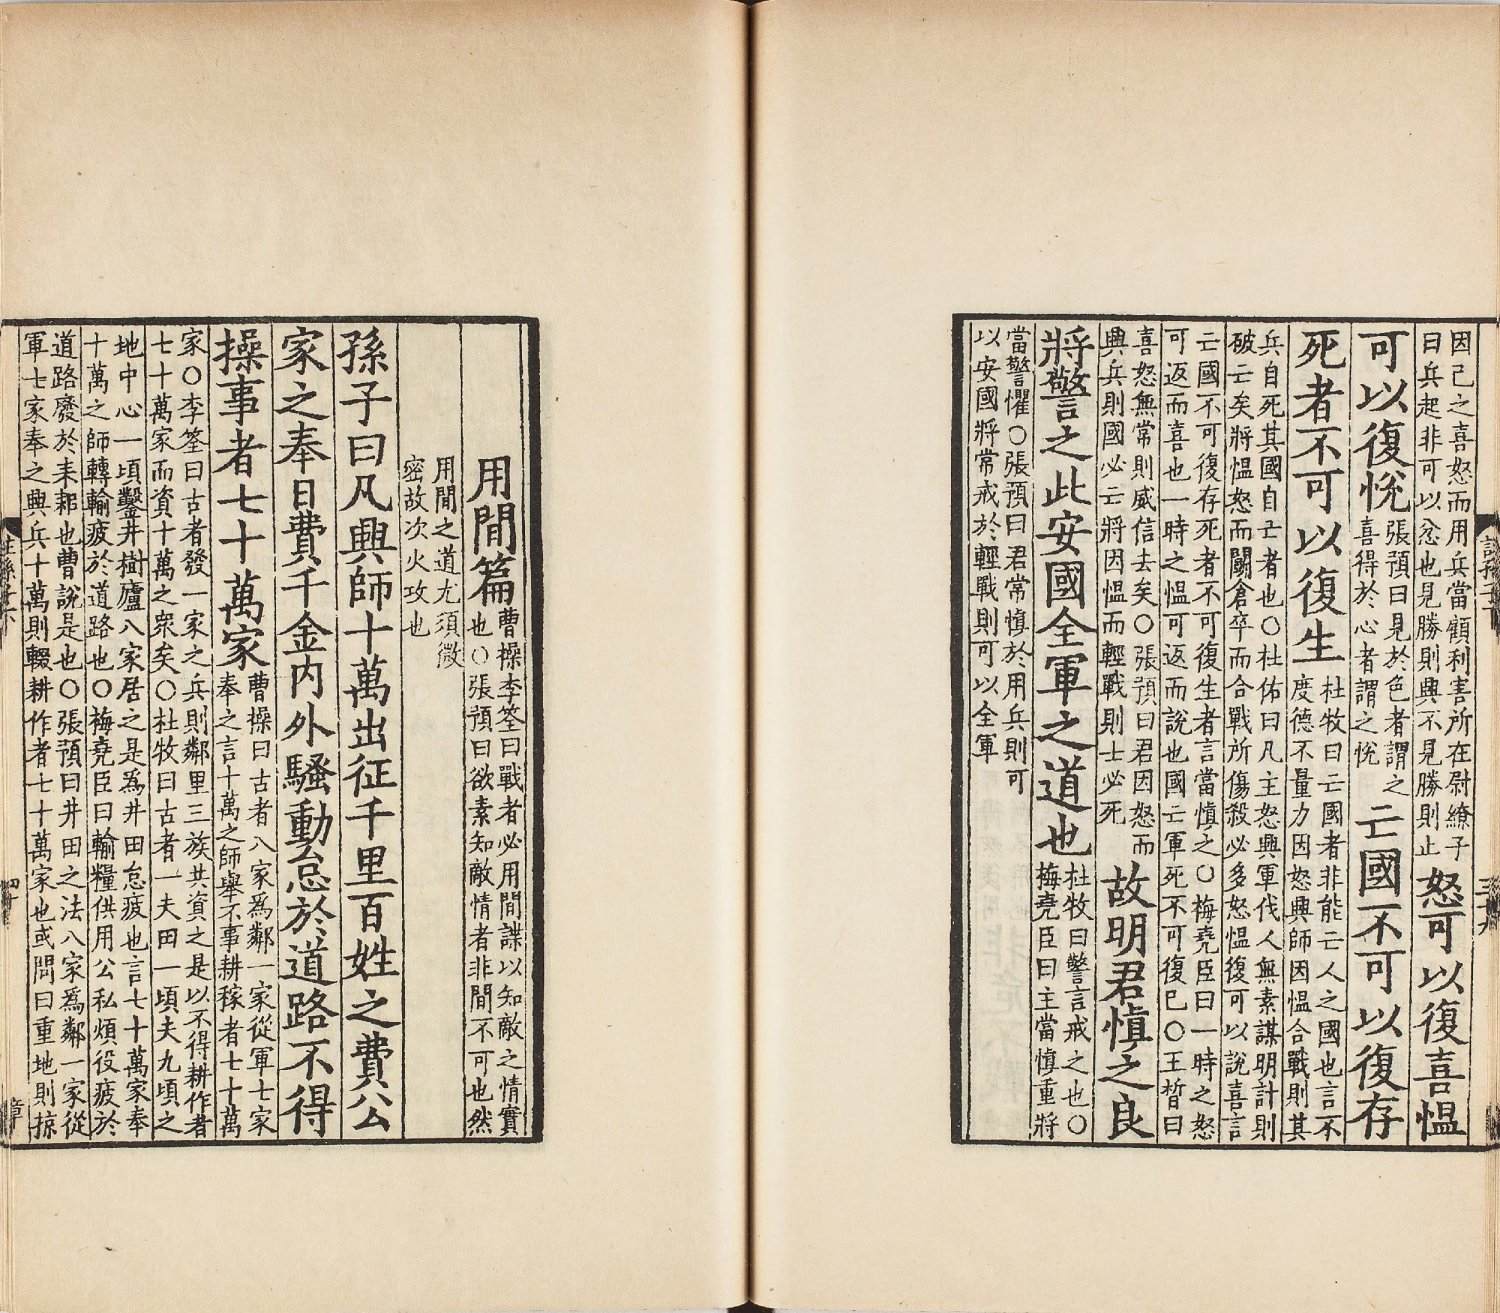 因己之喜怒而用兵當顧利害所在尉繚子
曰兵起非可以忿也見勝則興不見勝則止
怒可以復喜愠
可以復悅
張預曰見於色者謂之
喜得於心者謂之悅
亡國不可以復存
死者不可以復生
杜牧曰亡國者非能亡人之國也言不
度德不量力因怒興師因愠合戰則其
兵自死其國自亡者也○杜佑曰凡主怒興軍伐人無素謀明計則
破亡矣將愠怒而鬭倉卒而合戰所傷殺必多怒愠復可以說喜言
亡國不可復存死者不可復生者言當慎之○梅堯臣曰一時之怒
可返而喜也一時之愠可返而說也國亡軍死不可復已○王晳曰
喜怒無常則威信去矣○張預曰君因怒而
興兵則國必亡將因愠而輕戰則士必死
故明君慎之良
將警之此安國全軍之道也
杜牧曰警言戒之也○
梅堯臣曰主當慎重將
當警懼○張預曰君常慎於用兵則可
以安國將常戒於輕戰則可以全軍
用間篇
曹操李筌曰戰者必用間諜以知敵之情實
也○張預曰欲素知敵情者非間不可也然
用間之道尤須微
密故次火攻也
孫子曰凡興師十萬出征千里百姓之費公
家之奉日費千金內外騷動怠於道路不得
操事者七十萬家
曹操曰古者八家爲鄰一家從軍七家
奉之言十萬之師舉不事耕稼者七十萬
家○李筌曰古者發一家之兵則鄰里三族共資之是以不得耕作者
七十萬家而資十萬之衆矣○杜牧曰古者一夫田一頃夫九頃之
地中心一頃鑿井樹廬八家居之是爲井田怠疲也言七十萬家奉
十萬之師轉輸疲於道路也○梅堯臣曰輸糧供用公私煩役疲於
道路廢於耒耜也曹說是也○張預曰井田之法八家爲鄰一家從
軍七家奉之興兵十萬則輟耕作者七十萬家也或問曰重地則掠
四十
章